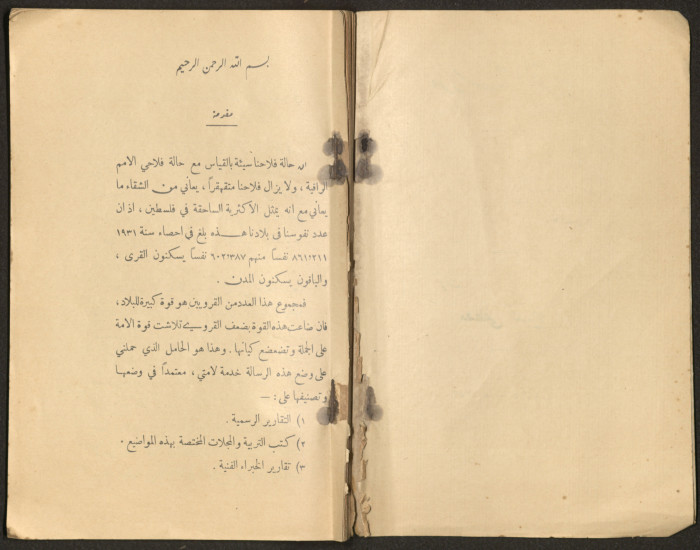 بسم الله الرحمن الرحيم
مقدمة
ان حالة فلاحنا سيئة بالقياس مع حالة فلاحي الامم
الراقية ، ولا يزال فلاحنا متقهقراً ، يعاني من الشقاء ما
يعاني مع انه يمثل الاكثرية الساحقة في فلسطين ، اذ ان
عدد نفوسنا في بلادنا هذه بلغ في احصاء سنة ١٩٣١
٨٦١٢١١ نفساً منهم ٦٠٢٣٨٧ نفساً يسكنون القرى ،
والباقون يسكنون المدن .
فمجموع هذا العدد من القرويين هو قوة كبيرة للبلاد،
فان ضاعت هذه القوة بضعف القروي تلاشت قوة الامة
على الجملة وتضعضع كيانها . وهذا هو الحامل الذي حملني
على وضع هذه الرسالة خدمة لامتي ، معتمداً في وضعها
وتصنيفها على : —
١) التقارير الرسمية .
٢) كتب التربية والمجلات المختصة بهذه المواضيع .
٣) تقارير الخبراء الفنية .